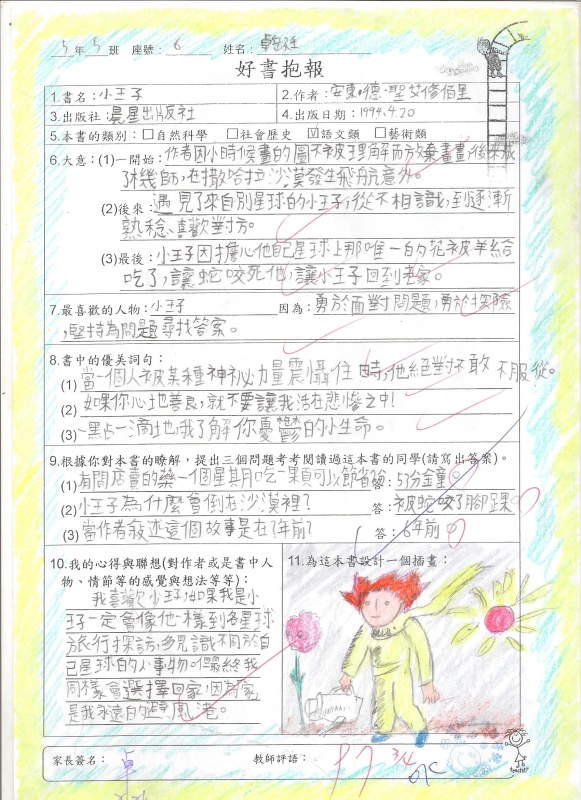 5年5班 座號：6 姓名：卓
好書抱報
1.書名：小王子 2.作者：安東·德·聖艾修伯里
3.出版社：晨星出版社 4.出版日期：1994.4.20
5.本書的類別：□自然科學 □社會歷史 ☑語文類 □藝術類
6.大意：(1)一開始：作者因小時候畫的圖不被理解而放棄畫畫，後來成
了機師，在撒哈拉沙漠發生飛航意外。
(2)後來：遇見了來自別星球的小王子，從不相識，到逐漸
熟稔、喜歡對方。
(3)最後：小王子因擔心他自己星球上那唯一的花被羊給
吃了，讓蛇咬死他，讓小王子回到老家。
7.最喜歡的人物：小王子 因為：勇於面對問題，勇於探險
，堅持為問題尋找答案。
8.書中的優美詞句：
(1)當一個人被某種神祕力量震懾住時，他絕對不敢不服從。
(2)如果你心地善良，就不要讓我活在悲慘之中！
(3)一點一滴地我了解你憂鬱的小生命。
9.根據你對本書的瞭解，提出三個問題考考閱讀過這本書的同學(請寫出答案)。
(1)有間店賣的藥一個星期吃一顆可以節省 答：53分金童。
(2)小王子為什麼會倒在沙漠裡？ 答：被蛇咬了腳踝。
(3)當作者敘述這個故事是在?年前？ 答：6年前。
10.我的心得與聯想(對作者或是書中人
物、情節等的感覺與想法等等)：
我喜歡小王子，如果我是小
王子一定會像他一樣到各星球
旅行探訪，多見識不同於自
己星球的小事物。但最終我
同樣會選擇回家，因為家
是我永遠的避風港。
11.為這本書設計一個插畫：
家長簽名：卓 教師評語： 97 3/4